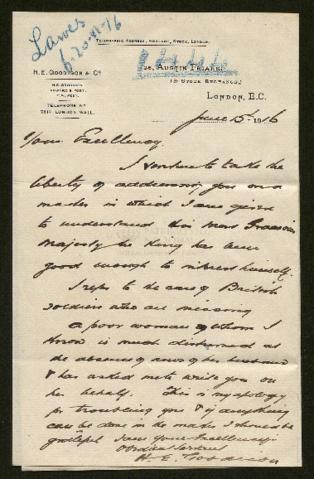 Laws
6-20-91-16
TELEGRAPHIC ADDRESS, LONDON.
H. E. GOODISON & Cº
28, AUSTIN FRIARS,
& STOCK EXCHANGE,
TELEPHONE Nº
LONDON WALL.
LONDON, E.C.
June 15th 1916
Your Excellency
I venture to take the
liberty of addressing you on a
matter in which I am given
to understand His most Gracious
Majesty the King has been
good enough to interest himself.
I refer to the case of British
soldiers who are missing
A poor woman whom I
know is much distressed at
the absence of news of her husband
& has asked me to write you on
her behalf. This is my apology
for troubling you & if anything
can be done in the matter I should be
grateful I am Your Excellency's
Obedient Servant
H. E. Goodison